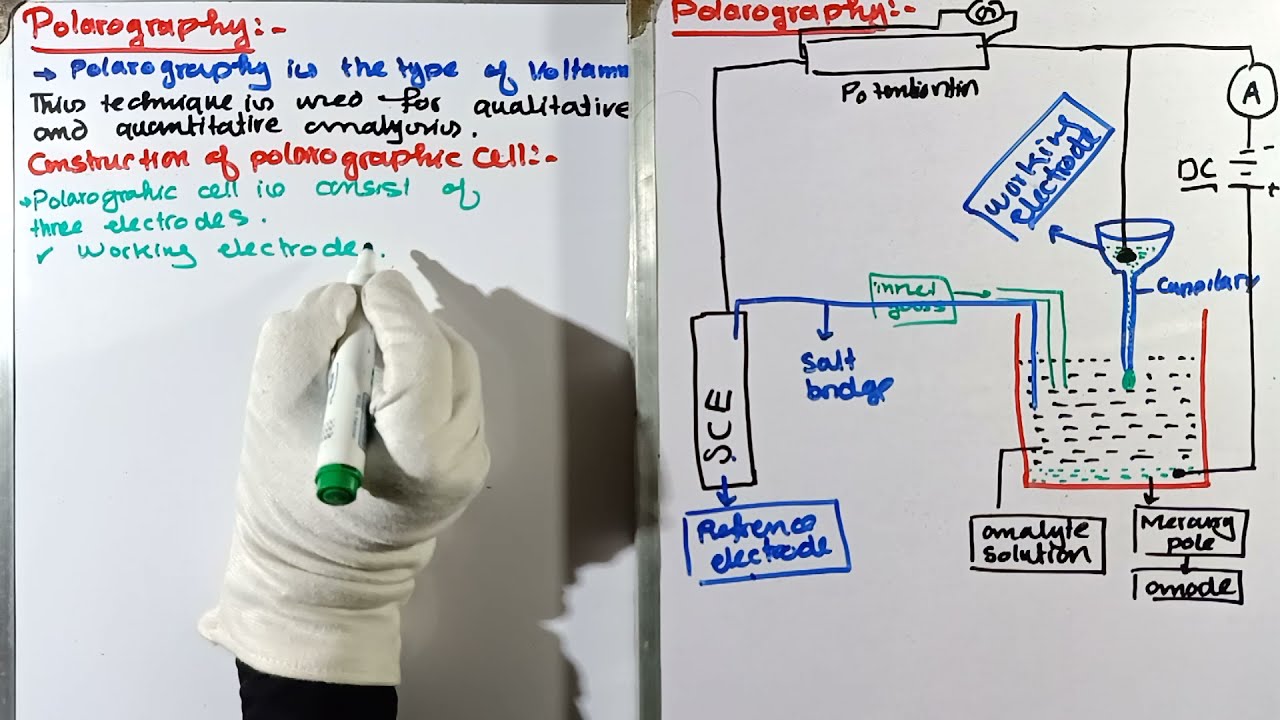 Polarography:-
→ Polarography is the type of Voltamm
This technique is used for qualitative
and quantitative analysis.
Construction of polarographic cell:-
→ Polarograhic cell is consist of
three electrodes.
✓ Working electrode.
Polarography:-
A
DC
-
+
Working
electrode
Cappilary
innet
gass
Salt
bridge
SCE
Refrence
electrode
analyte
solution
Mercury
pole
anode